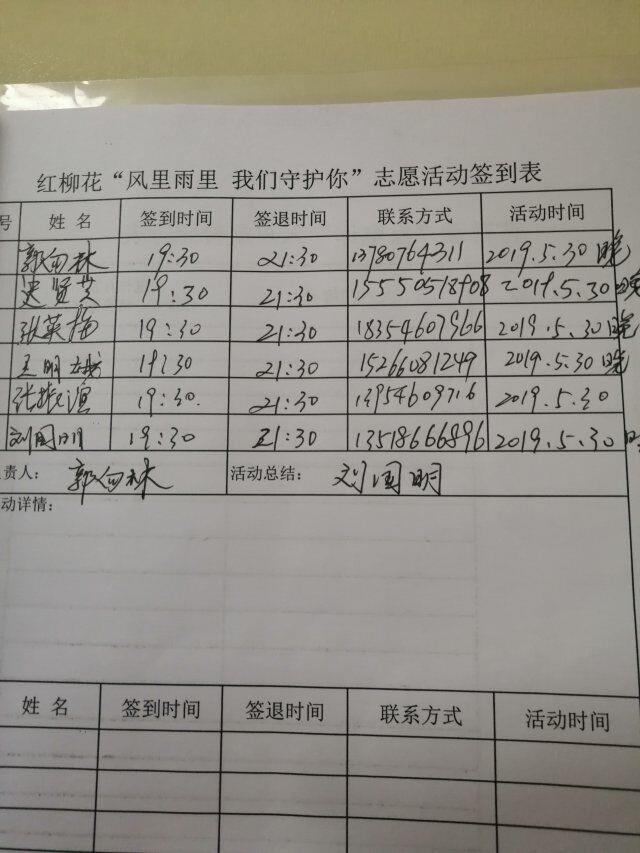 红柳花“风里雨里 我们守护你”志愿活动签到表
号 姓名 签到时间 签退时间 联系方式 活动时间
郭向林 19:30 21:30 13780764311 2019.5.30 晚
吴贤芬 19:30 21:30 15550518908 2019.5.30 晚
张英梅 19:30 21:30 18354607966 2019.5.30 晚
王明 19:30 21:30 15266081249 2019.5.30 晚
张振 19:30. 21:30 13954609716 2019.5.30
刘国明 19:30 21:30 13518666896 2019.5.30
责人: 郭向林 活动总结: 刘国明
动详情:
姓名 签到时间 签退时间 联系方式 活动时间